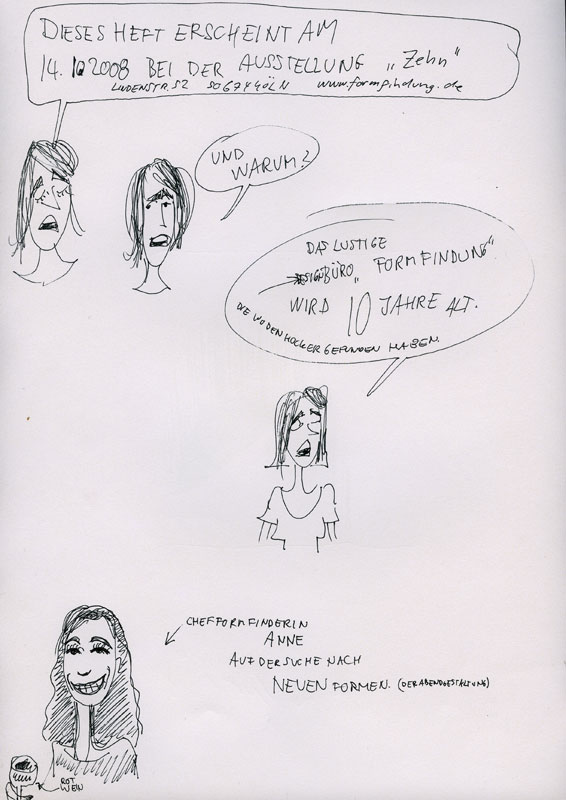 DIESES HEFT ERSCHEINT AM
14.10 2008 BEI DER AUSSTELLUNG „Zehn“
50674 KÖLN www.formfindung.de
UND
WARUM?
DAS LUSTIGE
DESIGNBÜRO „FORMFINDUNG“
WIRD 10 JAHRE ALT.
DIE WO DEN HOCKER GEFUNDEN HABEN.
CHEFFORMFINDERIN
ANNE
AUF DER SUCHE NACH
NEUEN FORMEN. (DER ABENDGESTALTUNG)
ROT
WEIN